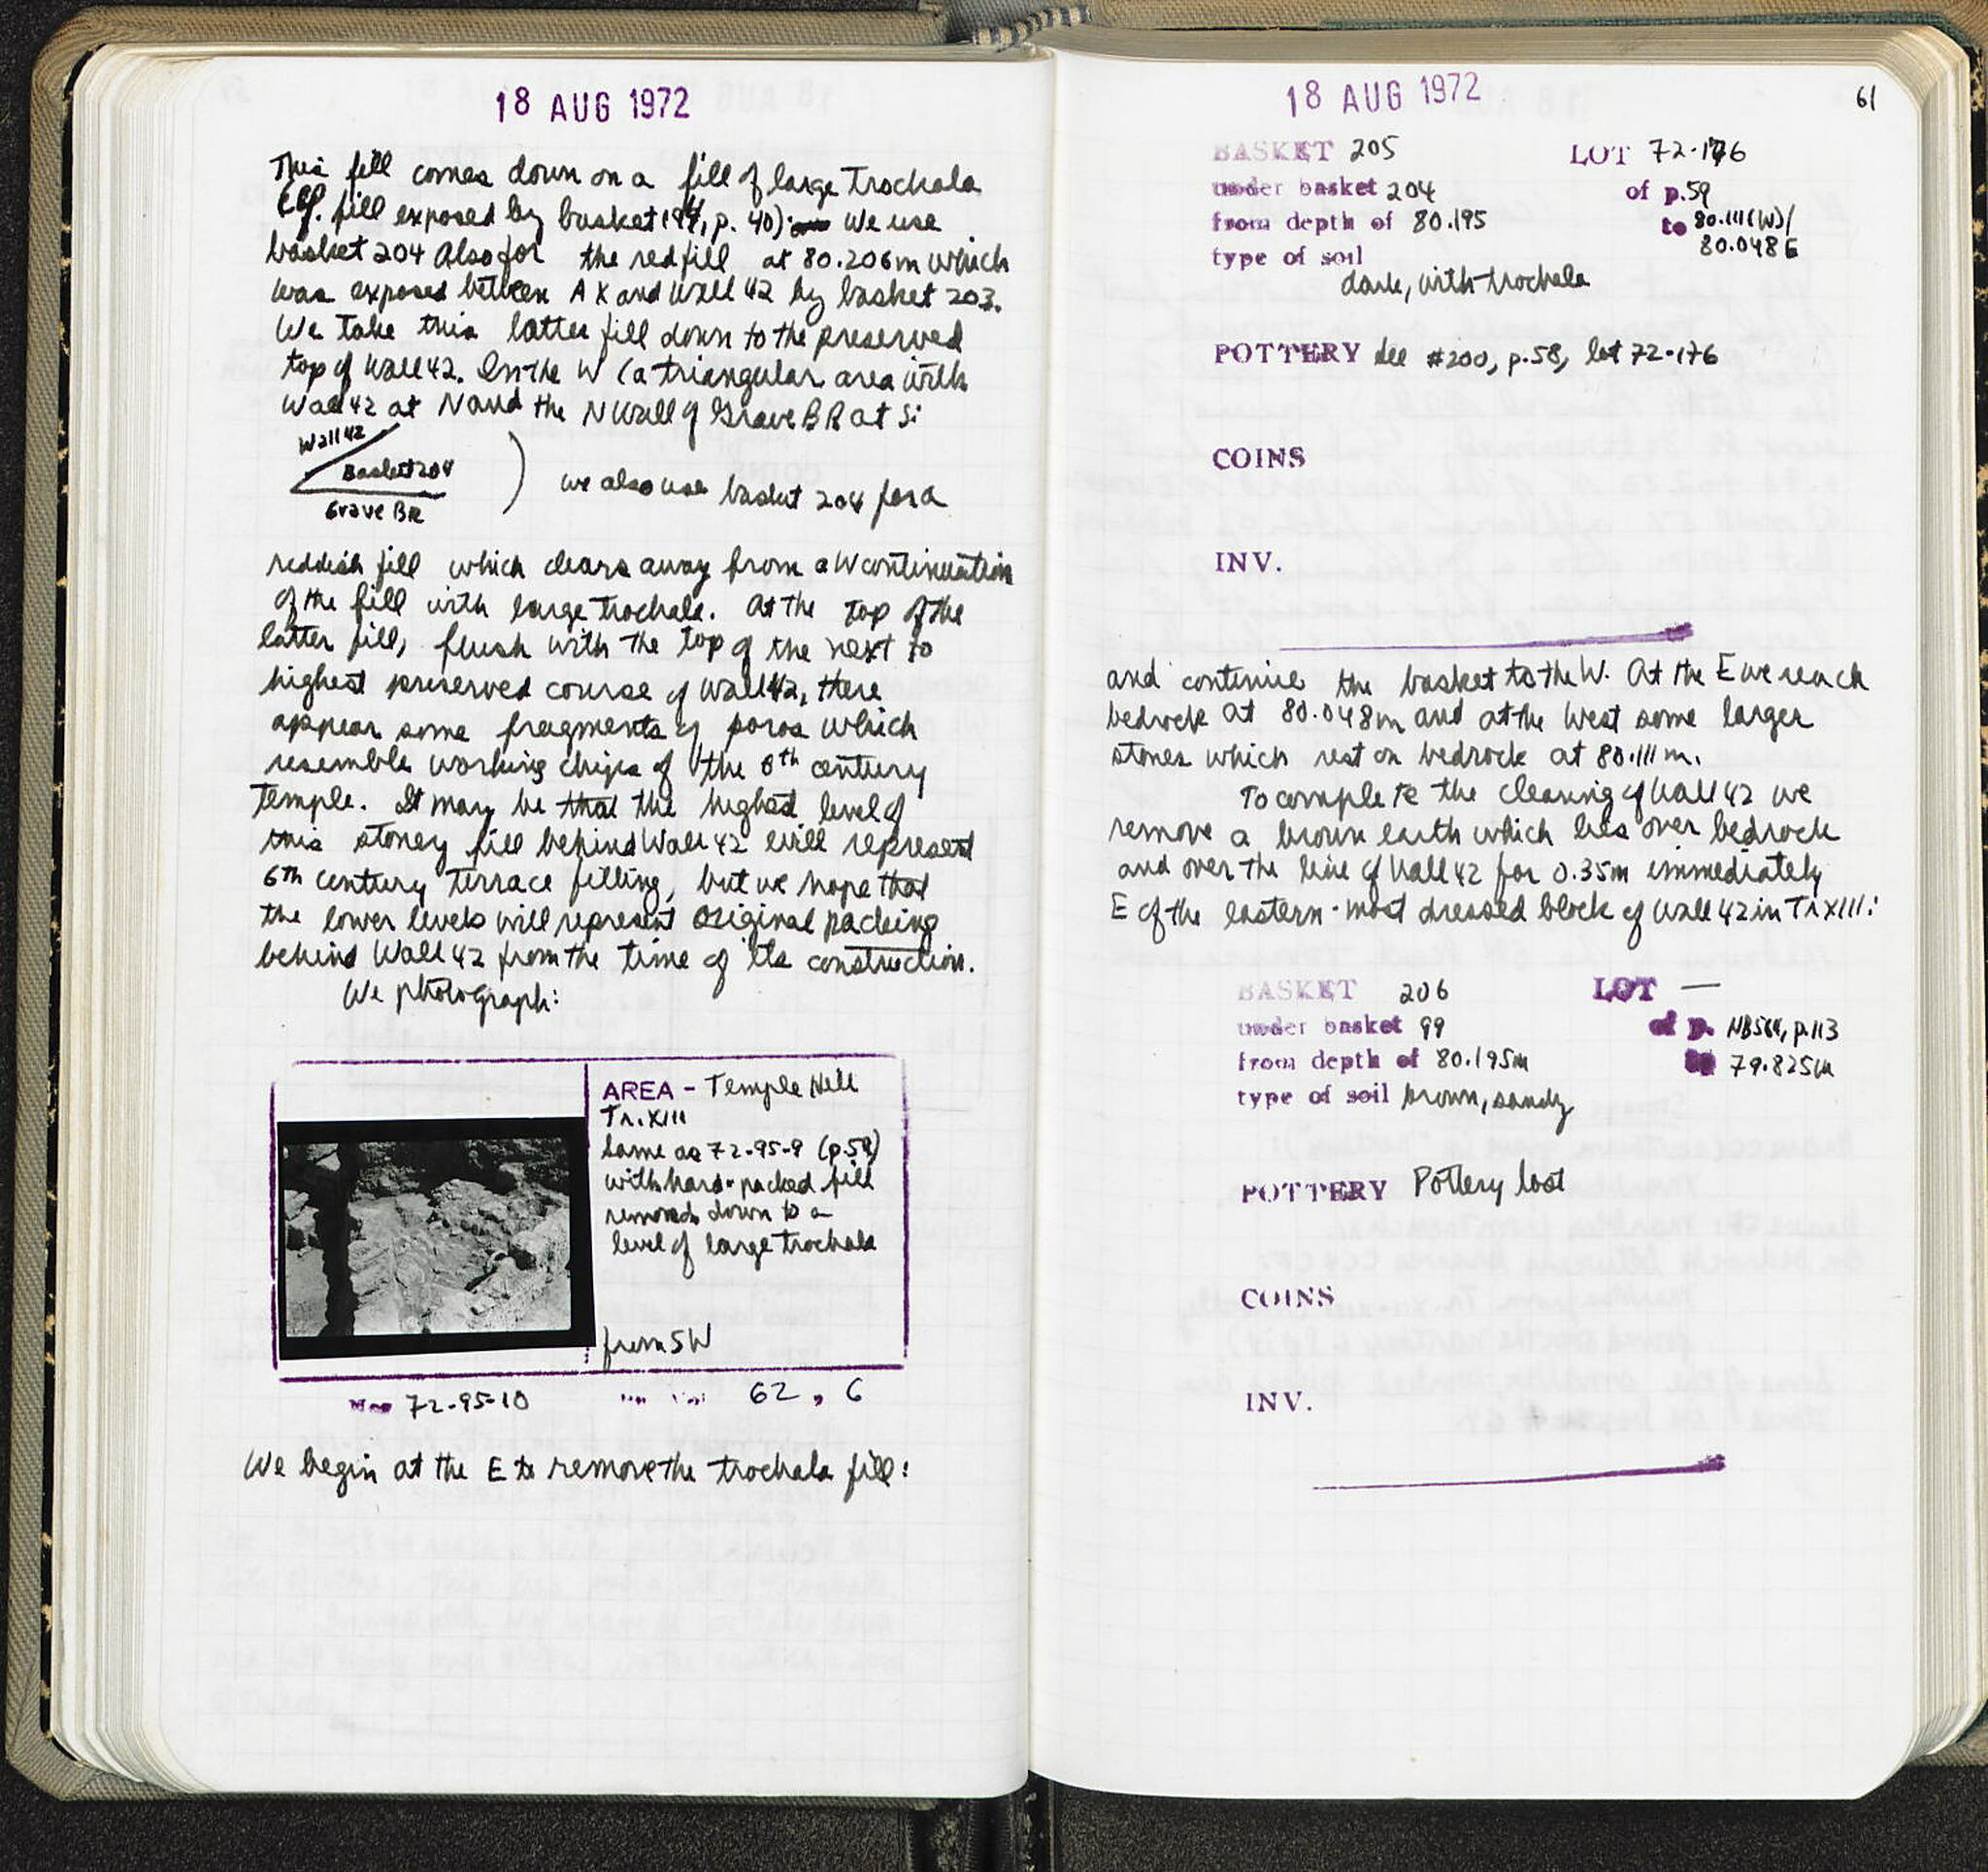 18 AUG 1972
This fill comes down on a fill of large Trochala
(cf. fill exposed by basket 194, p. 40). We use
basket 204 also for the red fill at 80.206m which
was exposed between AX and Wall 42 by basket 203.
We take this latter fill down to the preserved
top of Wall 42. In the W (a triangular area with
Wall 42 at N and the N Wall of Grave BR at S:
Wall 42
Basket 204
Grave BR
) we also use basket 204 for a
reddish fill which clears away from a W continuation
of the fill with large trochala. At the top of the
latter fill, flush with the top of the next to
highest preserved course of Wall 42, there
appear some fragments of poros which
resemble working chips of the 6th century
Temple. It may be that the highest level of
this stoney fill behind Wall 42 will represent
6th century Terrace filling, but we hope that
the lower levels will represent original packing
behind Wall 42 from the time of its construction.
We photograph:
AREA - Temple Hill
Tr. XIII
Same as 72-95-9 (p.59)
with hard-packed fill
removed down to a
level of large trochala
from SW
72-95-10 62, 6
We begin at the E to remove the trochala fill:
18 AUG 1972
61
BASKET 205 LOT 72-176
under basket 204 of p.59
from depth of 80.195 to 80.111(W)/
80.048E
type of soil
dark, with trochala
POTTERY See #200, p.58, lot 72-176
COINS
INV.
and continue the basket to the W. At the E we reach
bedrock at 80.048m and at the West some larger
stones which rest on bedrock at 80.111 m.
To complete the clearing of Wall 42 we
remove a brown earth which lies over bedrock
and over the line of Wall 42 for 0.35m immediately
E of the eastern-most dressed block of Wall 42 in Tr XIII:
BASKET 206 LOT —
under basket 99 of p. NB564, p.113
from depth of 80.195m 79.825m
type of soil brown, sandy
POTTERY Pottery lost
COINS
INV.